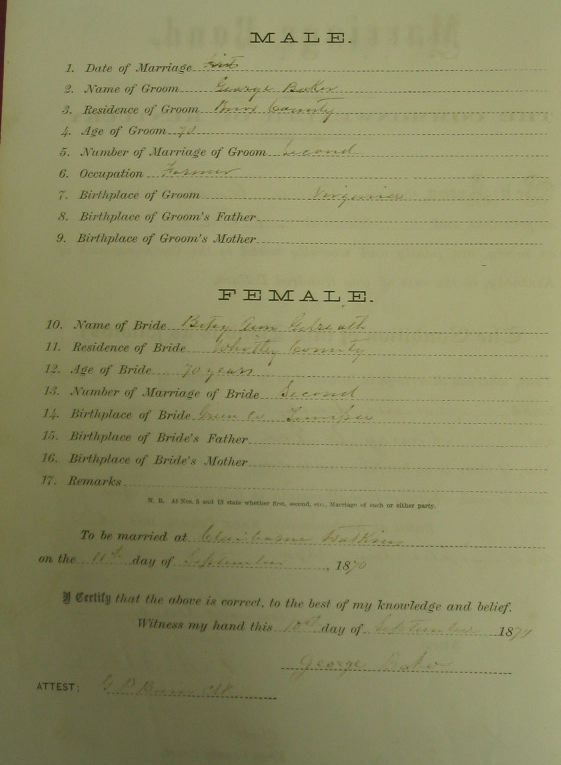 MALE.
1. Date of Marriage
2. Name of Groom George Baker
3. Residence of Groom County
4. Age of Groom 70
5. Number of Marriage of Groom Second
6. Occupation Farmer
7. Birthplace of Groom Virginia
8. Birthplace of Groom's Father
9. Birthplace of Groom's Mother
FEMALE.
10. Name of Bride Betsy Ann
11. Residence of Bride Whitley County
12. Age of Bride 70 years
13. Number of Marriage of Bride Second
14. Birthplace of Bride Green Co
15. Birthplace of Bride's Father
16. Birthplace of Bride's Mother
17. Remarks
N. B. At Nos. 5 and 13 state whether first, second, etc., Marriage of each or either party.
To be married at Claiborne
on the day of September, 187
I Certify that the above is correct, to the best of my knowledge and belief.
Witness my hand this 10th day of September 187
George Baker
ATTEST: